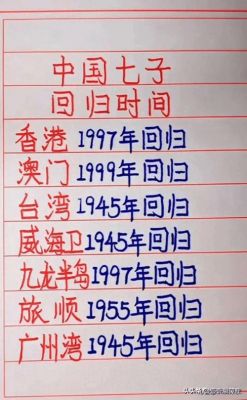 中国七子
回归时间
香港1997年回归
澳门1999年回归
台湾1945年回归
威海卫1945年回归
九龙半岛1997年回归
旅顺1955年回归
广州湾1945年回归